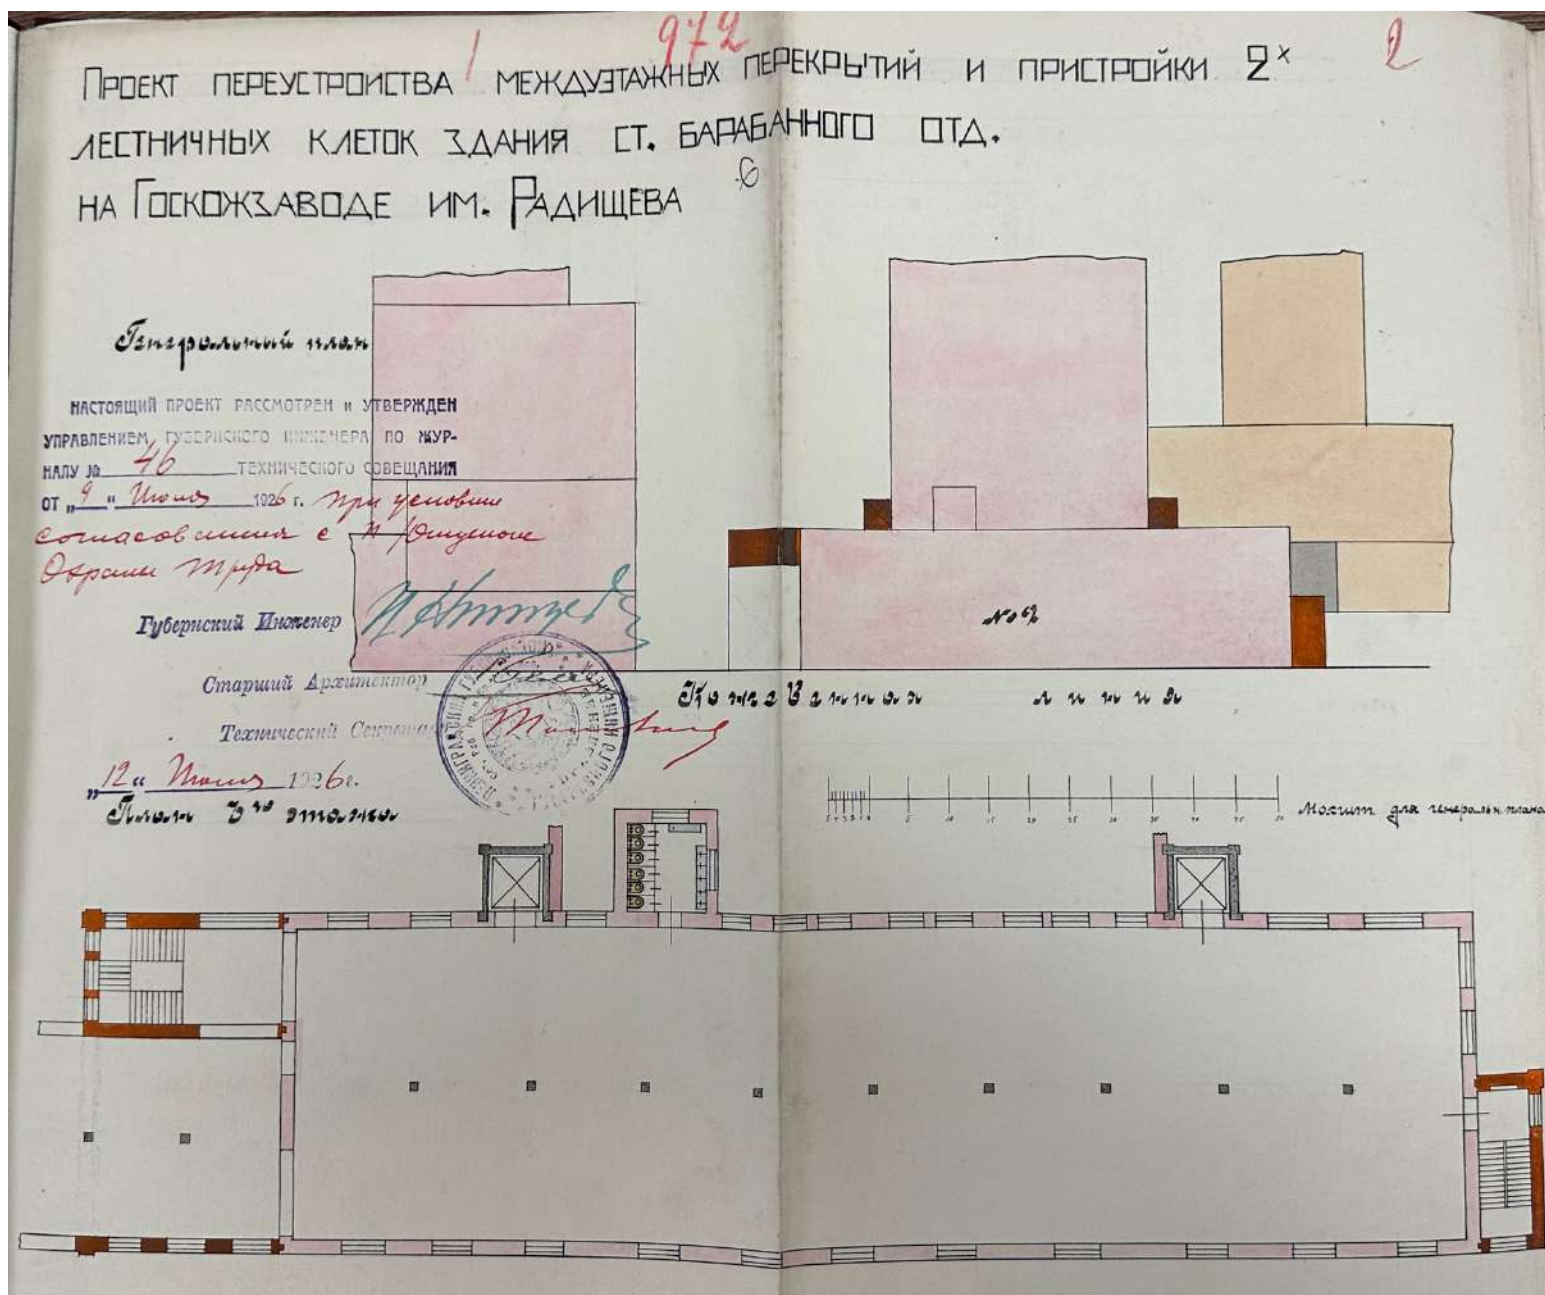 1 972 2
ПРОЕКТ ПЕРЕУСТРОИСТВА МЕЖДУЭТАЖНЫХ ПЕРЕКРЫТИЙ И ПРИСТРОЙКИ 2х
ЛЕСТНИЧНЫХ КЛЕТОК ЗДАНИЯ СТ. БАРАБАННОГО ОТД.
НА ГОСКОЖЗАВОДЕ ИМ. РАДИЩЕВА
Генеральный план
НАСТОЯЩИЙ ПРОЕКТ РАССМОТРЕН и УТВЕРЖДЕН
УПРАВЛЕНИЕМ ГУБЕРНСКОГО ИНЖЕНЕРА ПО ЖУР-
НАЛУ № 46 ТЕХНИЧЕСКОГО СОВЕЩАНИЯ
ОТ „9" Июля 1926 г. при условии
согласования с
Охраны труда
Губернский Инженер
Старший Архитектор
Технический Секретарь
„12" Июля 1926г.
№ 62
Кожевенная линия
5 4 3 2 1 0 5 10 15 20 25 30 35 40 45 50
Масшт для генеральн. плана
План 3го этажа